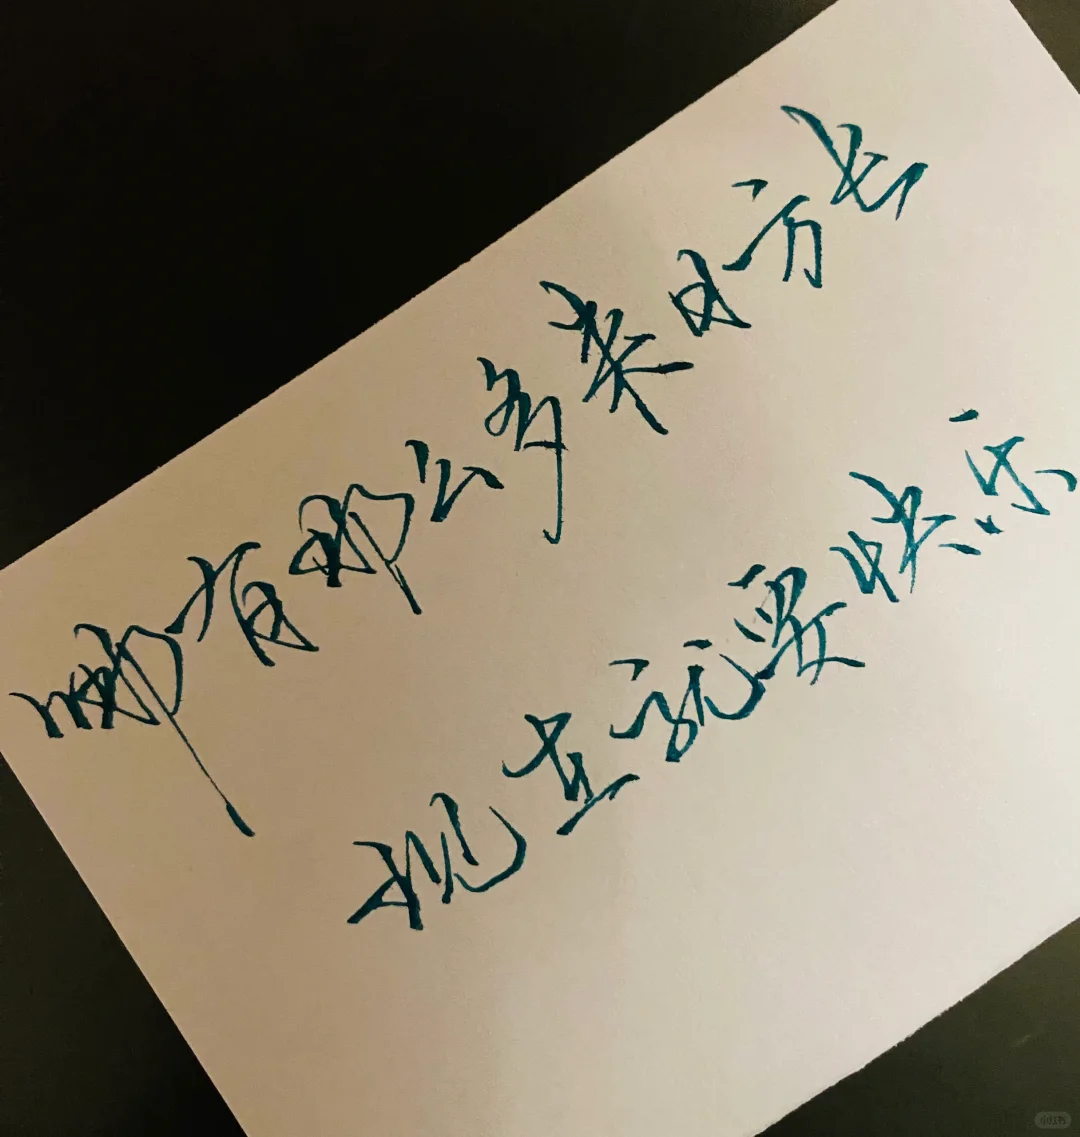 哪有那么多来日方长
现在就要快乐
小红书